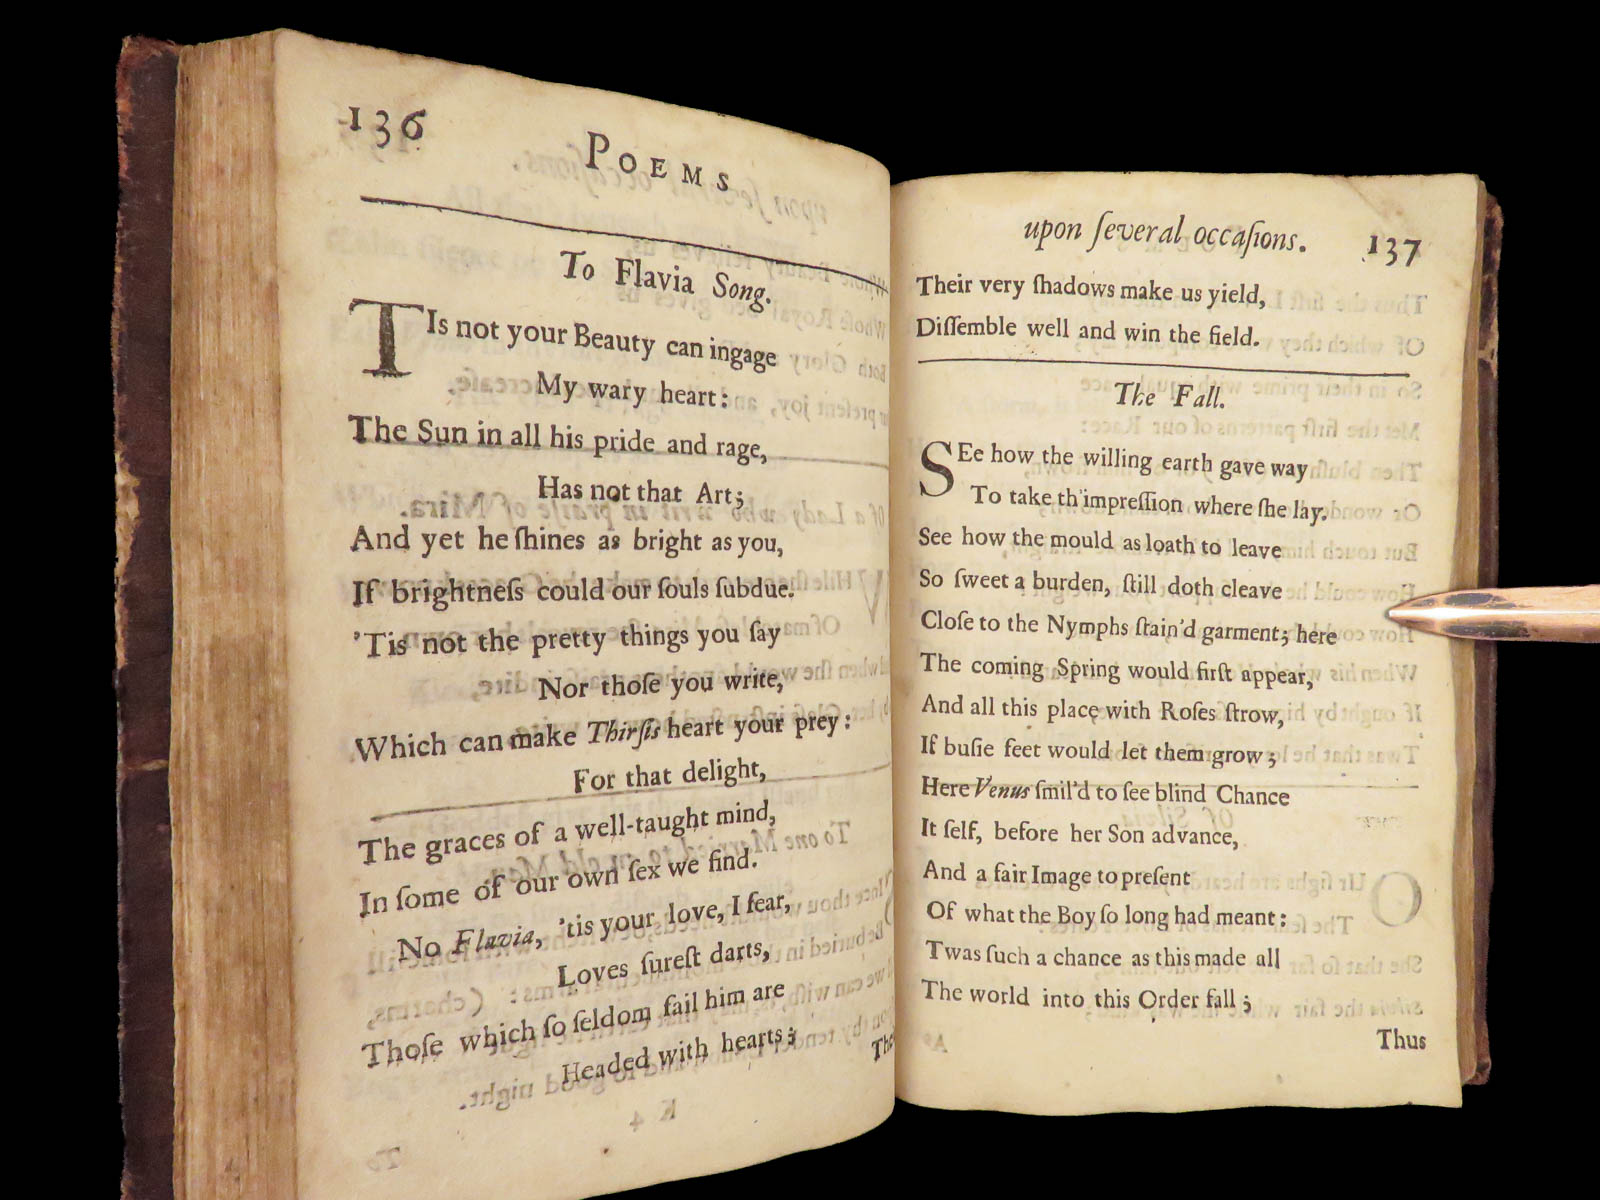 136
POEMS
To Flavia Song.
TIs not your Beauty can ingage
My wary heart:
The Sun in all his pride and rage,
Has not that Art;
And yet he ſhines as bright as you,
If brightneſs could our ſouls ſubdue.
'Tis not the pretty things you ſay
Nor thoſe you write,
Which can make Thirſis heart your prey:
For that delight,
The graces of a well-taught mind,
In ſome of our own ſex we find.
No Flavia, 'tis your love, I fear,
Loves ſureſt darts,
Thoſe which ſo ſeldom fail him are
Headed with hearts;
upon ſeveral occaſions. 137
Their very ſhadows make us yield,
Diſſemble well and win the field.
The Fall.
SEe how the willing earth gave way
To take th'impreſſion where ſhe lay.
See how the mould as loath to leave
So ſweet a burden, ſtill doth cleave
Cloſe to the Nymphs ſtain'd garment; here
The coming Spring would firſt appear,
And all this place with Roſes ſtrow,
If buſie feet would let them grow;
Here Venus ſmil'd to ſee blind Chance
It ſelf, before her Son advance,
And a fair Image to preſent
Of what the Boy ſo long had meant:
Twas ſuch a chance as this made all
The world into this Order fall;
Thus